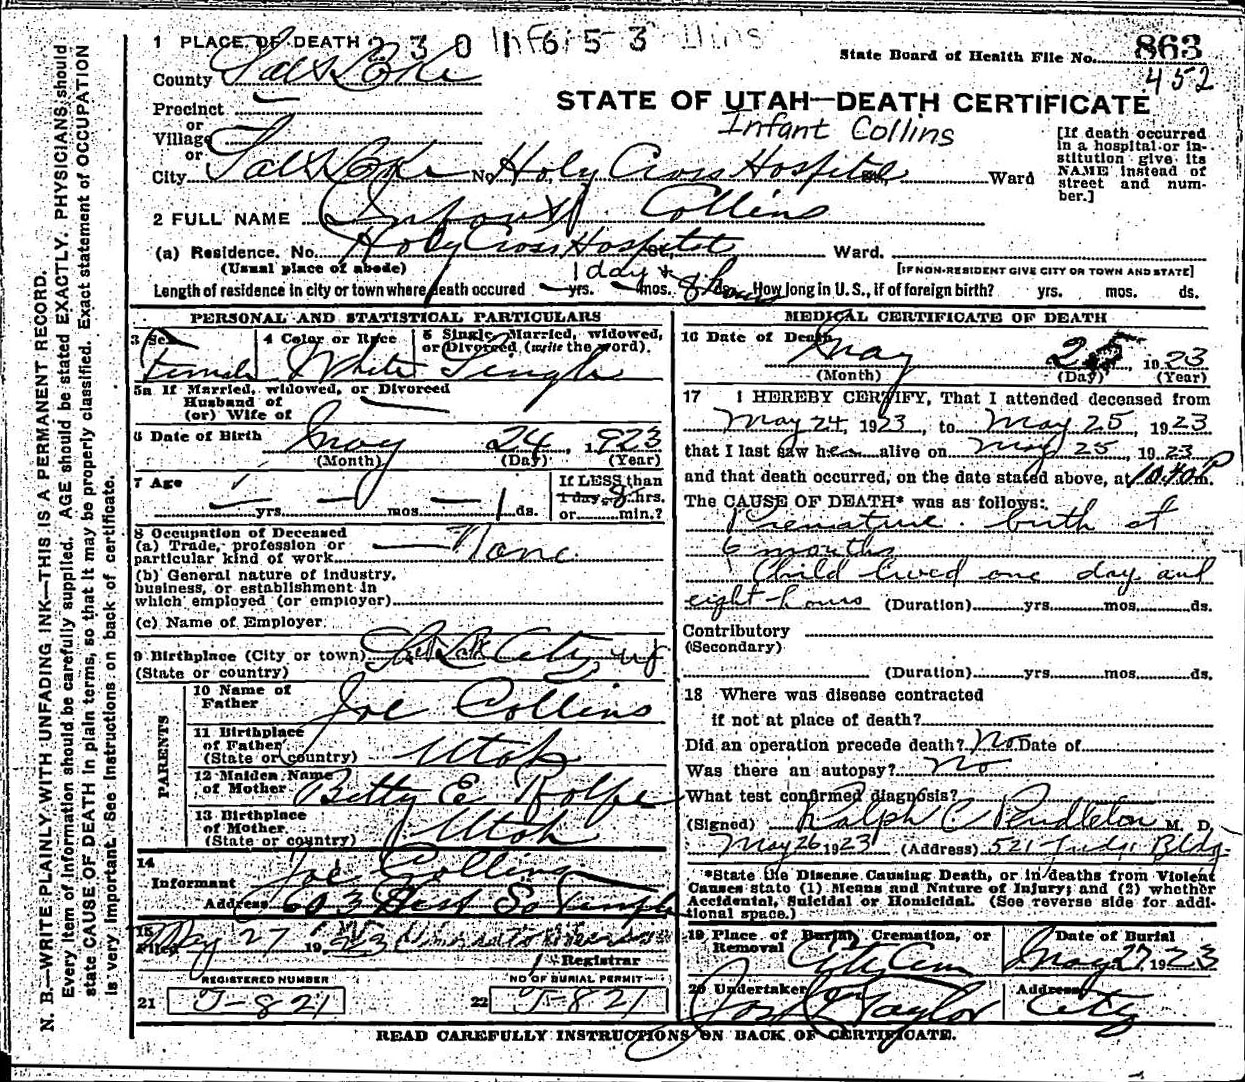 1 PLACE OF DEATH 2301653
State Board of Health File No. 863
452
County Salt Lake
STATE OF UTAH—DEATH CERTIFICATE
Infant Collins
Precinct
or
Village
or
City Salt Lake No Holy Cross Hospital St., Ward
[If death occurred in a hospital or in-
stitution give its
NAME instead of
street and num-
ber.]
2 FULL NAME Infant Collins
(a) Residence. No. Holy Cross Hospital St., Ward.
(Usual place of abode)
[IF NON-RESIDENT GIVE CITY OR TOWN AND STATE]
1 day & 8 hours
Length of residence in city or town where death occured yrs. mos. ds. How long in U. S., if of foreign birth? yrs. mos. ds.
PERSONAL AND STATISTICAL PARTICULARS
3 Sex 4 Color or Race 5 Single, Married, widowed,
or Divorced, (write the word).
Female White Single
5a If Married, widowed, or Divorced
Husband of
(or) Wife of
6 Date of Birth May 24, 1923
(Month) (Day) (Year)
7 Age
If LESS than
1 day, 8 hrs.
or min.?
— yrs. — mos. 1 ds.
8 Occupation of Deceased
(a) Trade, profession or
particular kind of work None
(b) General nature of Industry,
business, or establishment in
which employed (or employer)
(c) Name of Employer
9 Birthplace (City or town) Salt Lake City, Ut
(State or country)
PARENTS
10 Name of
Father Joe Collins
11 Birthplace
of Father
(State or country) Utah
12 Maiden Name
of Mother Betty E Rolfe
13 Birthplace
of Mother
(State or country) Utah
14
Informant Joe Collins
Address 603 West So Temple
15
Filed May 27 1923
Registrar
REGISTERED NUMBER
NO OF BURIAL PERMIT
21 J-821
22 J-821
MEDICAL CERTIFICATE OF DEATH
16 Date of Death May 25 1923
(Month) (Day) (Year)
17 I HEREBY CERTIFY, That I attended deceased from
May 24, 1923, to May 25, 1923
that I last saw her alive on May 25, 1923
and that death occurred, on the date stated above, at 10:40 P m.
The CAUSE OF DEATH* was as follows:
Premature birth at
6 months
Child lived one day and
eight hours (Duration) yrs. mos. ds.
Contributory
(Secondary)
(Duration) yrs. mos. ds.
18 Where was disease contracted
if not at place of death?
Did an operation precede death? No Date of
Was there an autopsy? No
What test confirmed diagnosis?
(Signed) Ralph C Pendleton M. D.
May 26 1923 (Address) 521 Judge Bldg.
*State the Disease Causing Death, or in deaths from Violent
Causes state (1) Means and Nature of Injury; and (2) whether
Accidental, Suicidal or Homicidal. (See reverse side for addi-
tional space.)
19 Place of Burial, Cremation, or
Removal City Cem
Date of Burial
May 27, 1923
20 Undertaker Jos Taylor
Address City
READ CAREFULLY INSTRUCTIONS ON BACK OF CERTIFICATE.
N. B.—WRITE PLAINLY WITH UNFADING INK—THIS IS A PERMANENT RECORD.
Every item of information should be carefully supplied. AGE should be stated EXACTLY. PHYSICIANS should
state CAUSE OF DEATH in plain terms, so that it may be properly classified. Exact statement of OCCUPATION
is very important. See instructions on back of certificate.